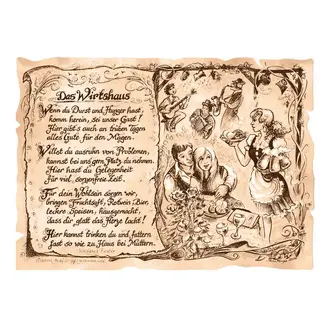 Das Wirtshaus
Wenn du Durst und Hunger hast,
komm herein, sei unser Gast!
Hier gibt's auch an trüben Tagen
alles Gute für den Magen.
Willst du ausruhn von Problemen,
kannst bei uns gern Platz du nehmen.
Hier hast du Gelegenheit
für viel sorgenfreie Zeit.
Für dein Wohlsein sorgen wir,
bringen Fruchtsaft, Rotwein, Bier,
leckre Speisen, hausgemacht,
dass dir glatt das Herze lacht!
Hier kannst trinken du und futtern
fast so wie zu Haus bei Muttern.